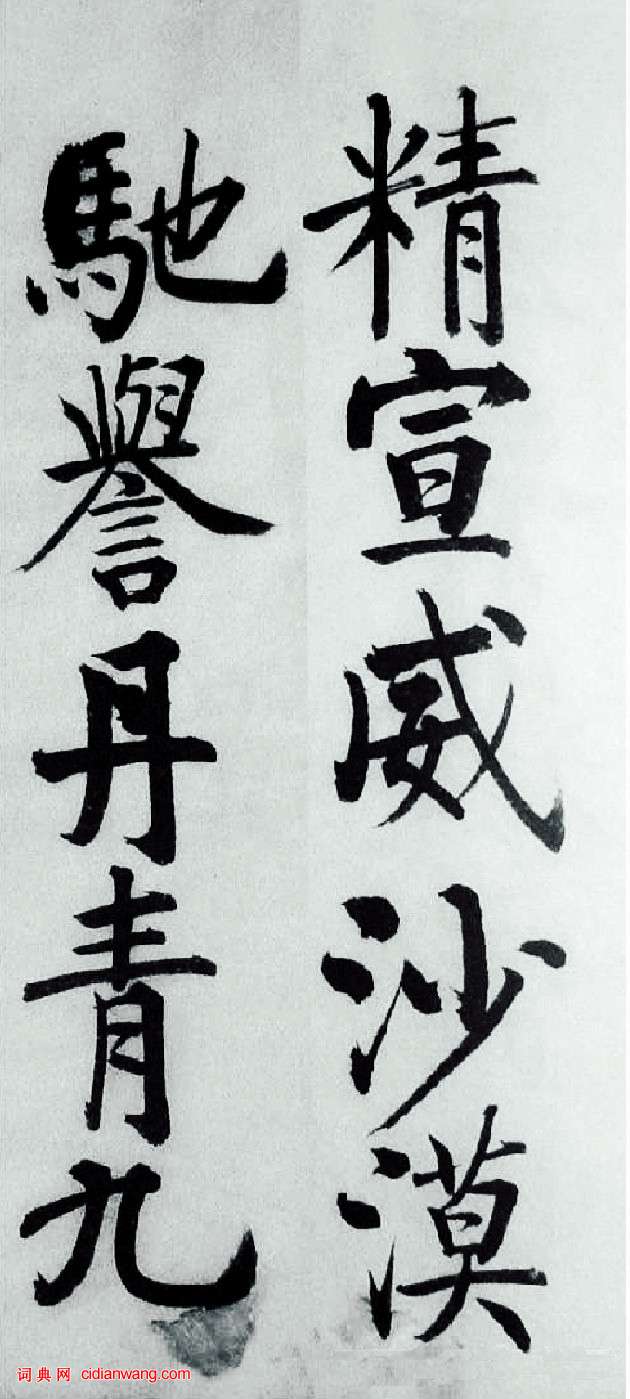 精宣威沙漠
馳譽丹青九
词典网 cidianwang.com